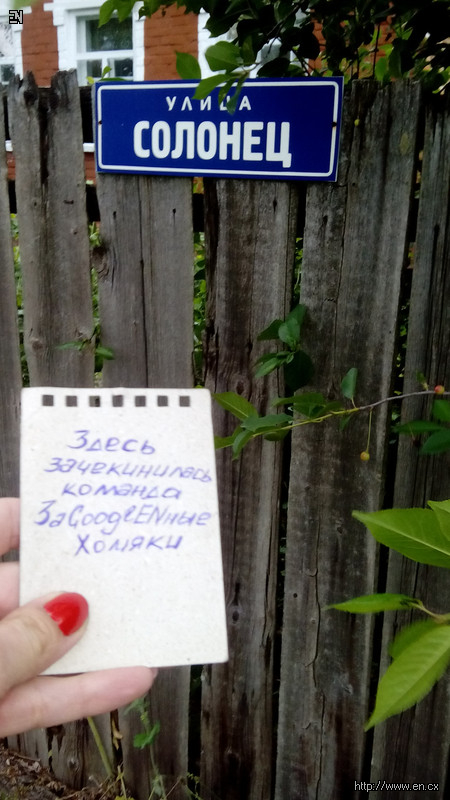 EN
УЛИЦА
СОЛОНЕЦ
Здесь
зачекинилась
команда
ЗаGooglENные
Хомяки
http://www.en.cx